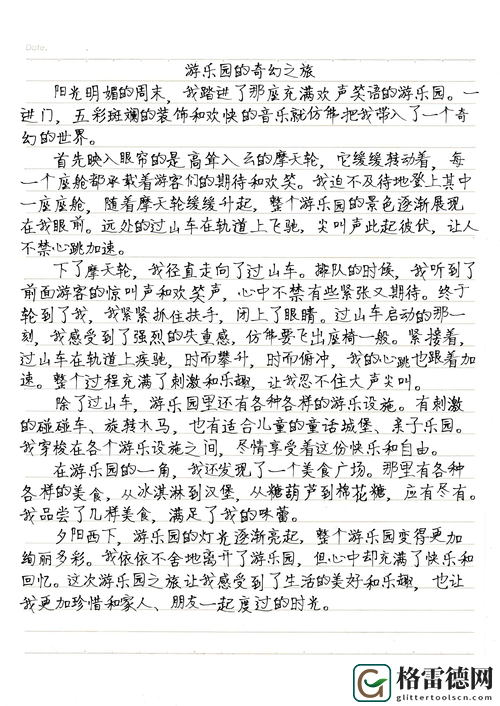 Date.
游乐园的奇幻之旅
阳光明媚的周末，我踏进了那座充满欢声笑语的游乐园。一
进门，五彩斑斓的装饰和欢快的音乐就仿佛把我带入了一个奇
幻的世界。
首先映入眼帘的是高耸入云的摩天轮，它缓缓转动着，每
一个座舱都承载着游客们的期待和欢笑。我迫不及待地登上其中
一座座舱，随着摩天轮缓缓升起，整个游乐园的景色逐渐展现
在我眼前。远处的过山车在轨道上飞驰，尖叫声此起彼伏，让人
不禁心跳加速。
下了摩天轮，我径直走向了过山车。排队的时候，我听到了
前面游客的惊叫声和欢笑声，心中不禁有些紧张又期待。终于
轮到了我，我紧紧抓住扶手，闭上了眼睛。过山车启动的那一
刻，我感受到了强烈的失重感，仿佛要飞出座椅一般。紧接着，
过山车在轨道上疾驰，时而攀升，时而俯冲，我的心跳也跟着加
速。整个过程充满了刺激和乐趣，让我忍不住大声尖叫。
除了过山车，游乐园里还有各种各样的游乐设施。有刺激
的碰碰车、旋转木马，也有适合儿童的童话城堡、亲子乐园。
我穿梭在各个游乐设施之间，尽情享受着这份快乐和自由。
在游乐园的一角，我还发现了一个美食广场。那里有各种
各样的美食，从冰淇淋到汉堡，从糖葫芦到棉花糖，应有尽有。
我品尝了几样美食，满足了我的味蕾。
夕阳西下，游乐园的灯光逐渐亮起，整个游乐园变得更加
绚丽多彩。我依依不舍地离开了游乐园，但心中却充满了快乐和
回忆。这次游乐园之旅让我感受到了生活的美好和乐趣，也让
我更加珍惜和家人、朋友一起度过的时光。
格雷德网
www.glittertoolscn.com